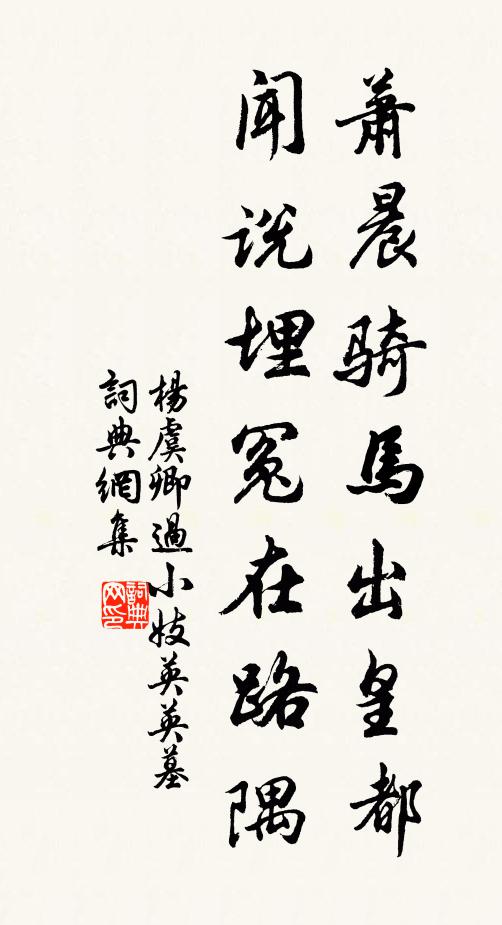 蕭晨騎馬出皇都
聞说埋冤在路隅
楊虞卿過小妓英英墓
詞典網集
詞典网印